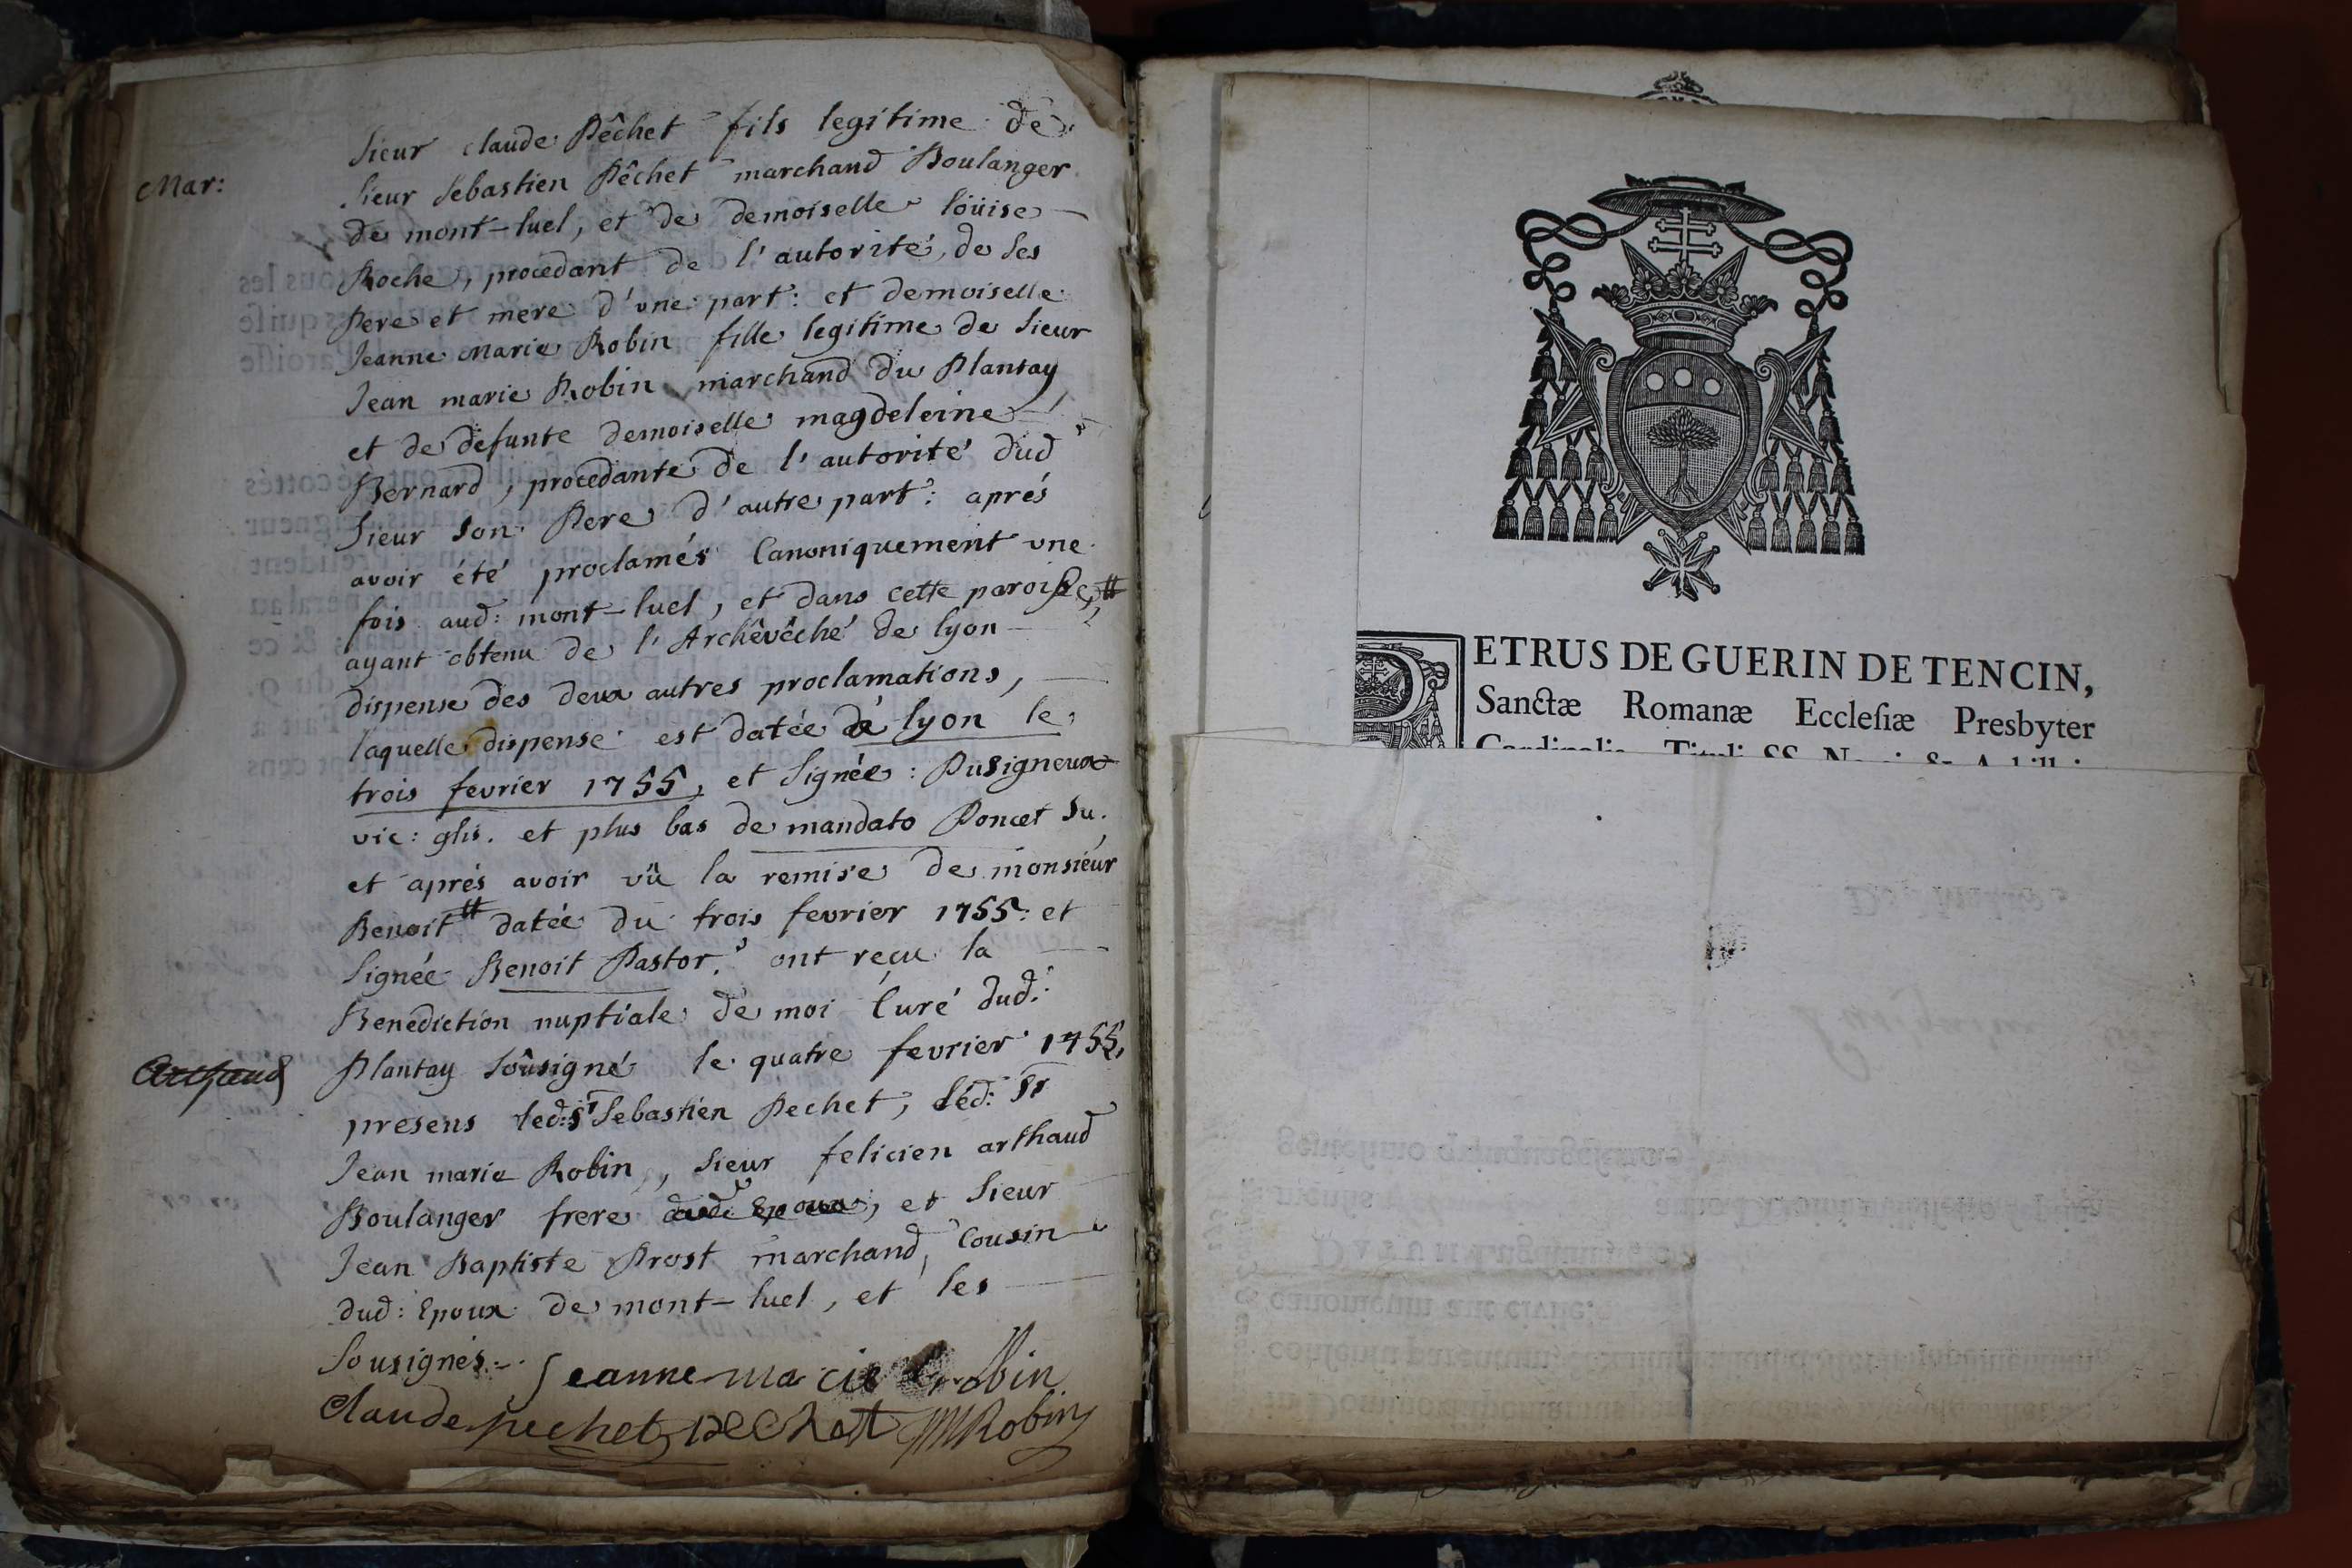 Mar:
Sieur claude Pêchet fils legitime de
Sieur Sebastien Pêchet marchand Boulanger
de mont-luel, et de demoiselle loüise
Roche, procedant de l'autorité, de ses
Pere et mere d'une part: et demoiselle
Jeanne Marie Robin fille legitime de Sieur
Jean marie Robin marchand du Plantay,
et de defunte demoiselle magdeleine
Bernard, procedante de l'autorité dud
Sieur son Pere d'autre part: aprés
avoir été proclamés Canoniquement une
fois aud: mont-luel, et dans cette paroisse, #
ayant obtenu de l'Archêvêché de lyon
dispense des deux autres proclamations,
laquelle dispense est datée à lyon le
trois fevrier 1755, et Signée: Pusigneux
vic: glis. et plus bas de mandato Poncet Su.
et aprés avoir vû la remise de monsieur
Benoit # datée du trois fevrier 1755: et
Signée Benoit Pastor. ont reçu la
Benediction nuptiale de moi Curé dud:
Plantay Soûsigné le quatre fevrier 1755,
presens led: Sr Sebastien Pechet, Léd: Sr
Jean marie Robin, Sieur felicien arthaud
Boulanger frere dud: Epoux, et Sieur
Jean Baptiste Prost marchand, Cousin
dud: Epoux de mont-luel, et les
Sousignés.
Jeanne Marie Robin
Claude pechet pechet JM Robin
ETRUS DE GUERIN DE TENCIN,
Sanctæ Romanæ Ecclesiæ Presbyter